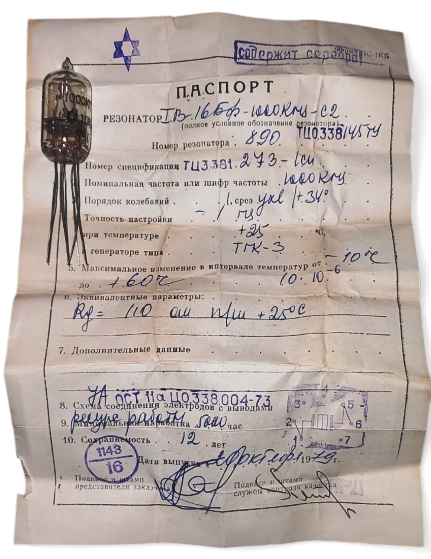 содержит серебро
ПАСПОРТ
РЕЗОНАТОР ПВ-16БФ-1000Кгц-С2
(полное условное обозначение резонатора)
ТЦ0338145ТУ
Номер резонатора 890.
Номер спецификации ТЦ3.381.273-1сп
Номинальная частота или шифр частоты 1000Кгц
Порядок колебаний 1, срез
Точность настройки 1 гц
при температуре +25 °С,
генераторе типа ТГК-3
5. Максимальное изменение в интервале температур от -10°С
до +60°С 10·10-6
6. Эквивалентные параметры:
Rд = 110 ом при +25°С
7. Дополнительные данные
ОСТ 11а Ц0.338.004-73
8. Схема соединения электродов с выводами
ресурс работы 5000
9. Минимальная наработка час
10. Сохраняемость 12 лет
1143
16
Дата выпуска октября 1979г.
Подпись и штамп
представителя заказчика
Подпись и штамп
службы контроля качества
3
5
2
6
1
7